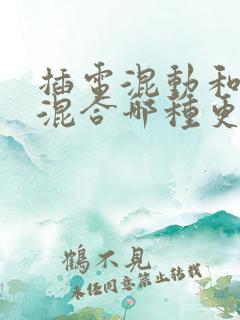 插電混動和
混合哪種更
鶴不見
未经同意禁止转载